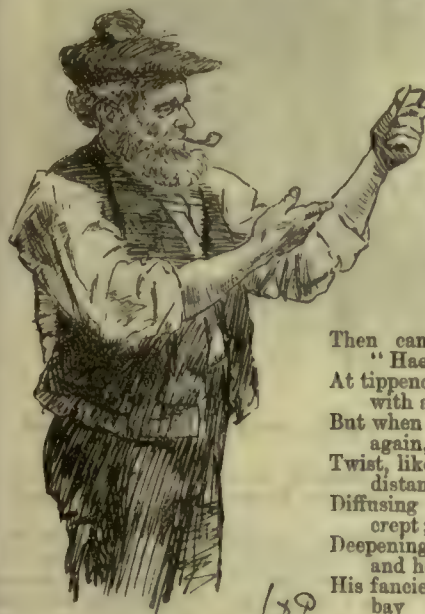 Then can
"Hae
At tippenc
with a
But when
again,
Twist, lik
distan
Diffusing
crept
Deepening
and h
His fancie
bay